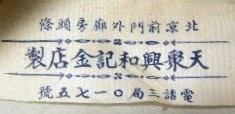 北京前門外廊房頭條
天聚興和記金店製
電話三局〇一七五號